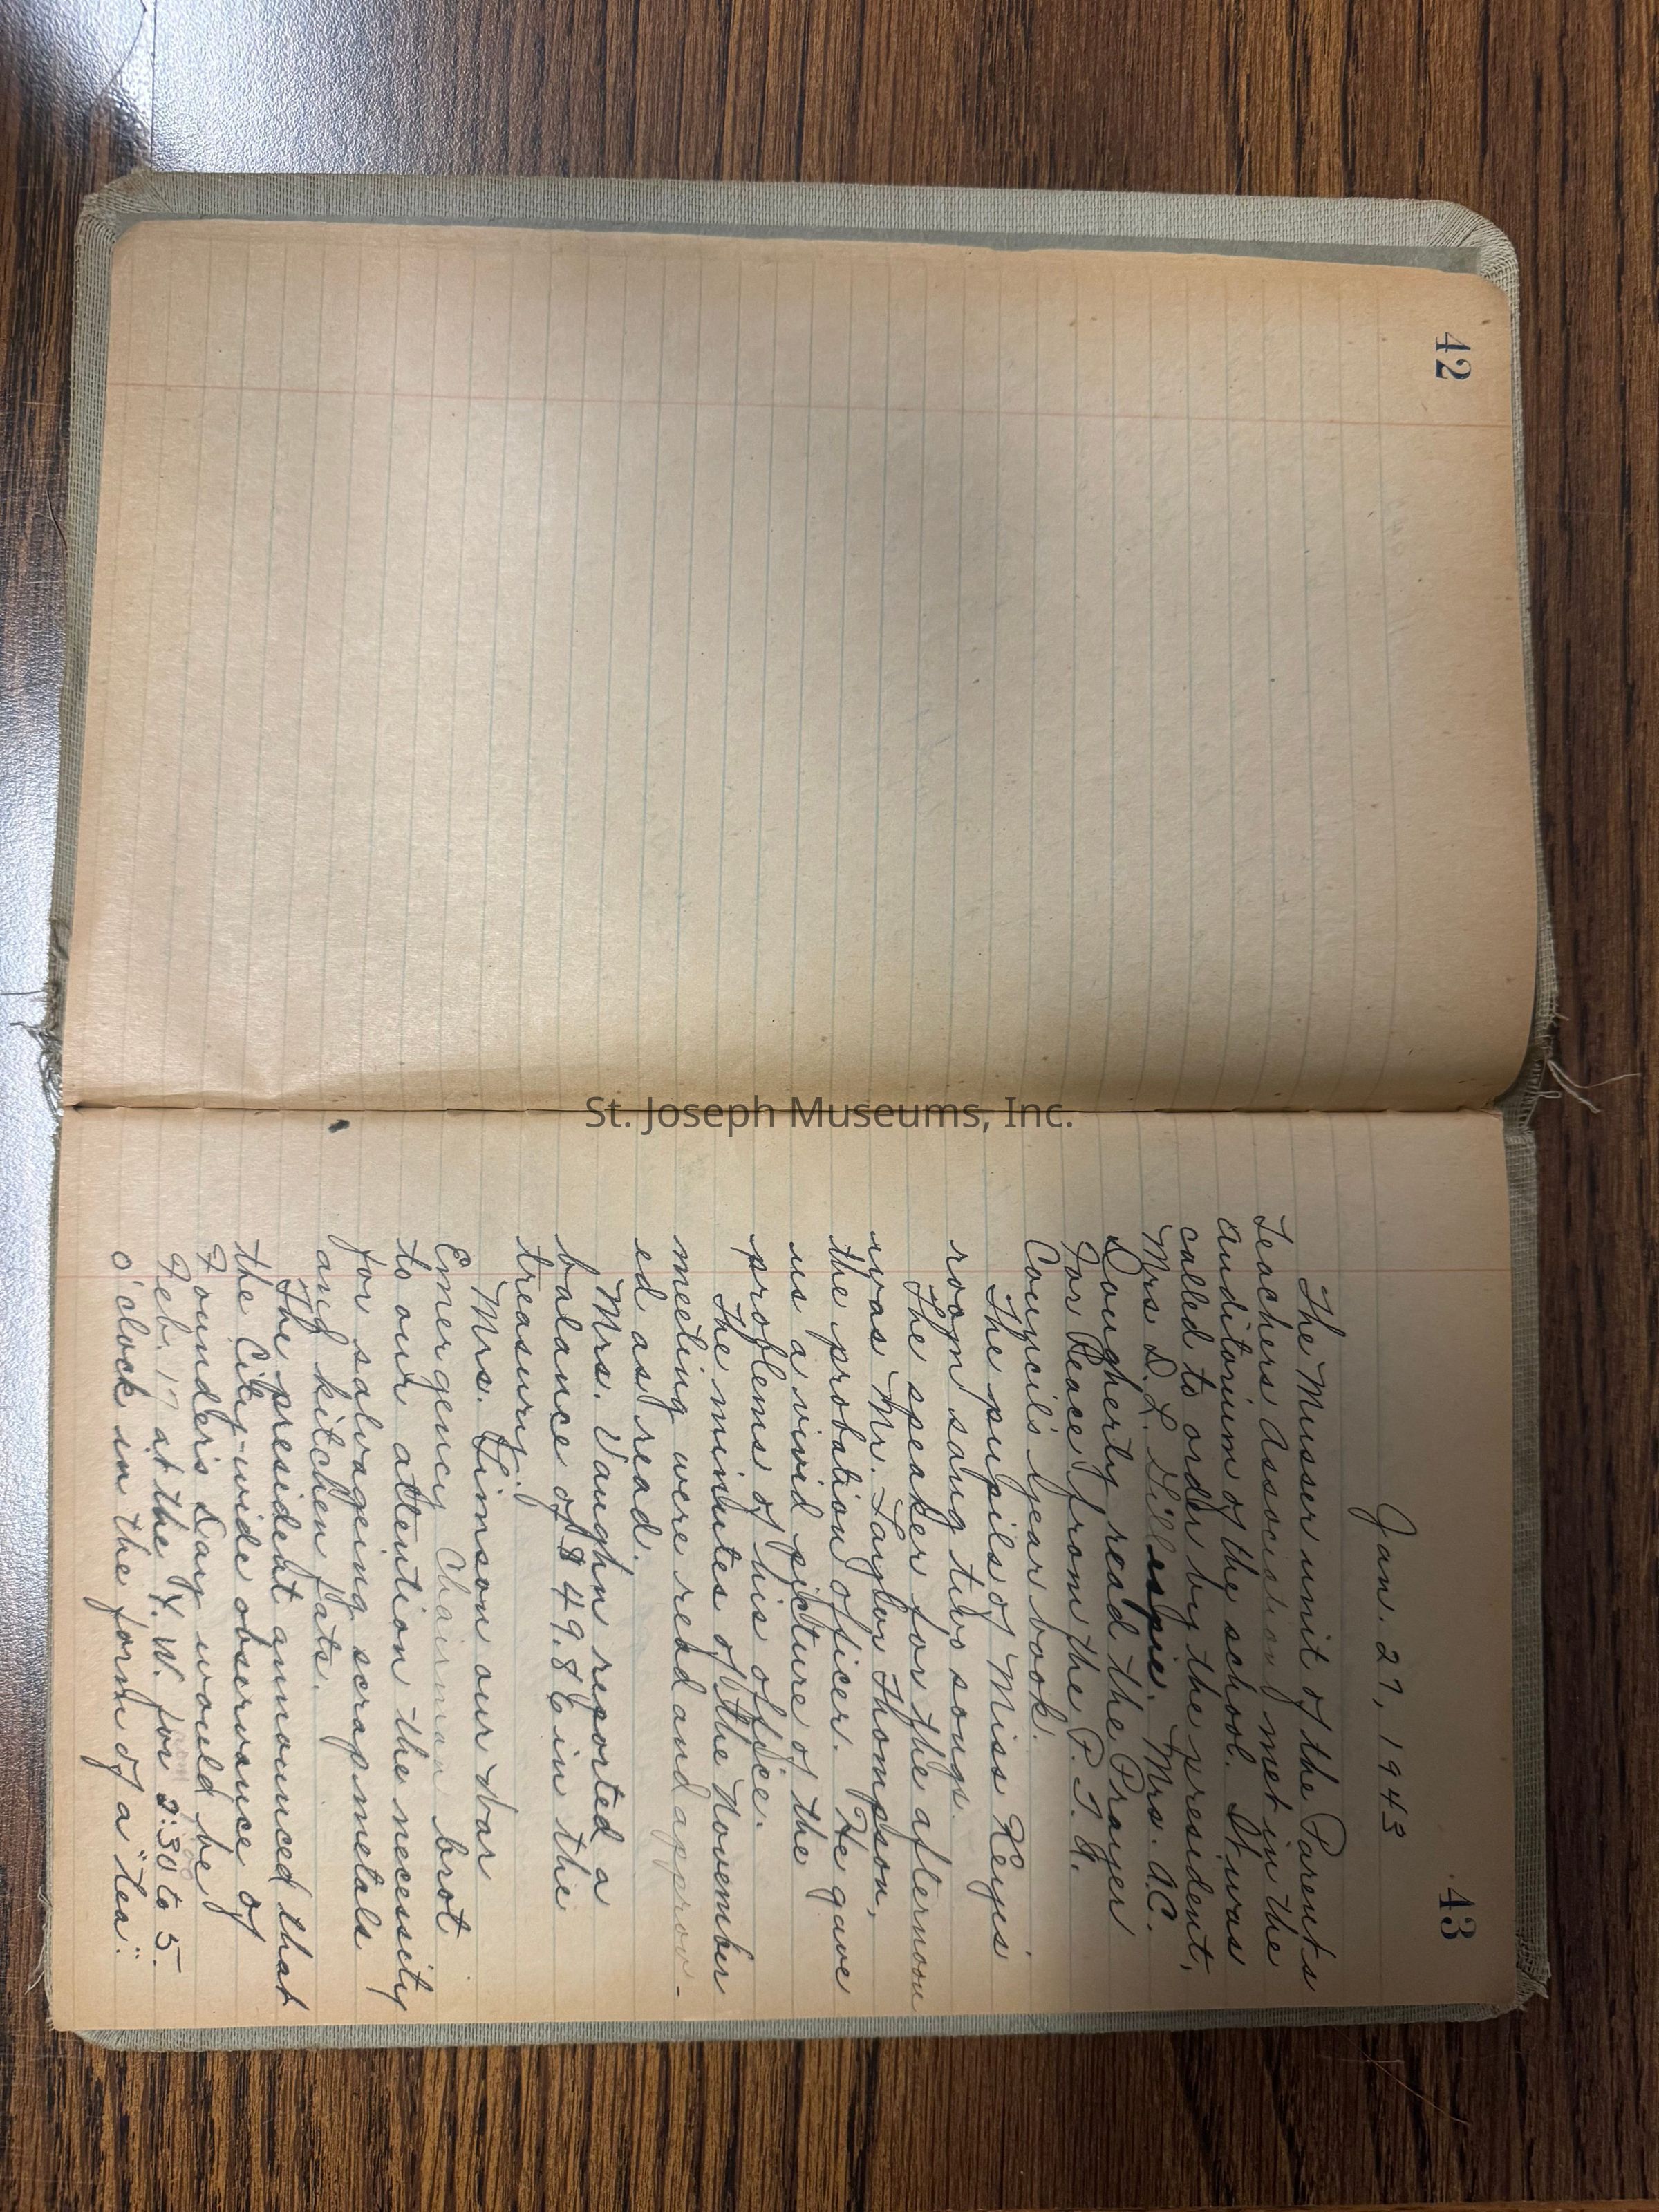 42
43
Jan. 27, 1943
The Musser unit of the Parents
Teachers Association met in the
auditorium of the school. It was
called to order by the president,
Mrs D. L. Gillespie. Mrs. A.C.
Dougherty read the Prayer
For Peace from the P. T. A.
Council's year book.
The pupils of Miss Keys'
room sang two songs.
The speaker for the afternoon
was Mr. Taylor Thompson,
the probation officer. He gave
us a vivid picture of the
problems of his office.
The minutes of the November
meeting were read and approv-
ed as read.
Mrs. Vaughn reported a
balance of $49.86 in the
treasury.
Mrs. Timson our War
Emergency Chairman brot
to our attention the necessity
for salvageing scrap metals
and kitchen fats.
The president announced that
the City-wide observance of
Founder's Day would be
Feb. 17 at the Y. W. from 2:30 to 5.
o'clock in the form of a "tea".
St. Joseph Museums, Inc.